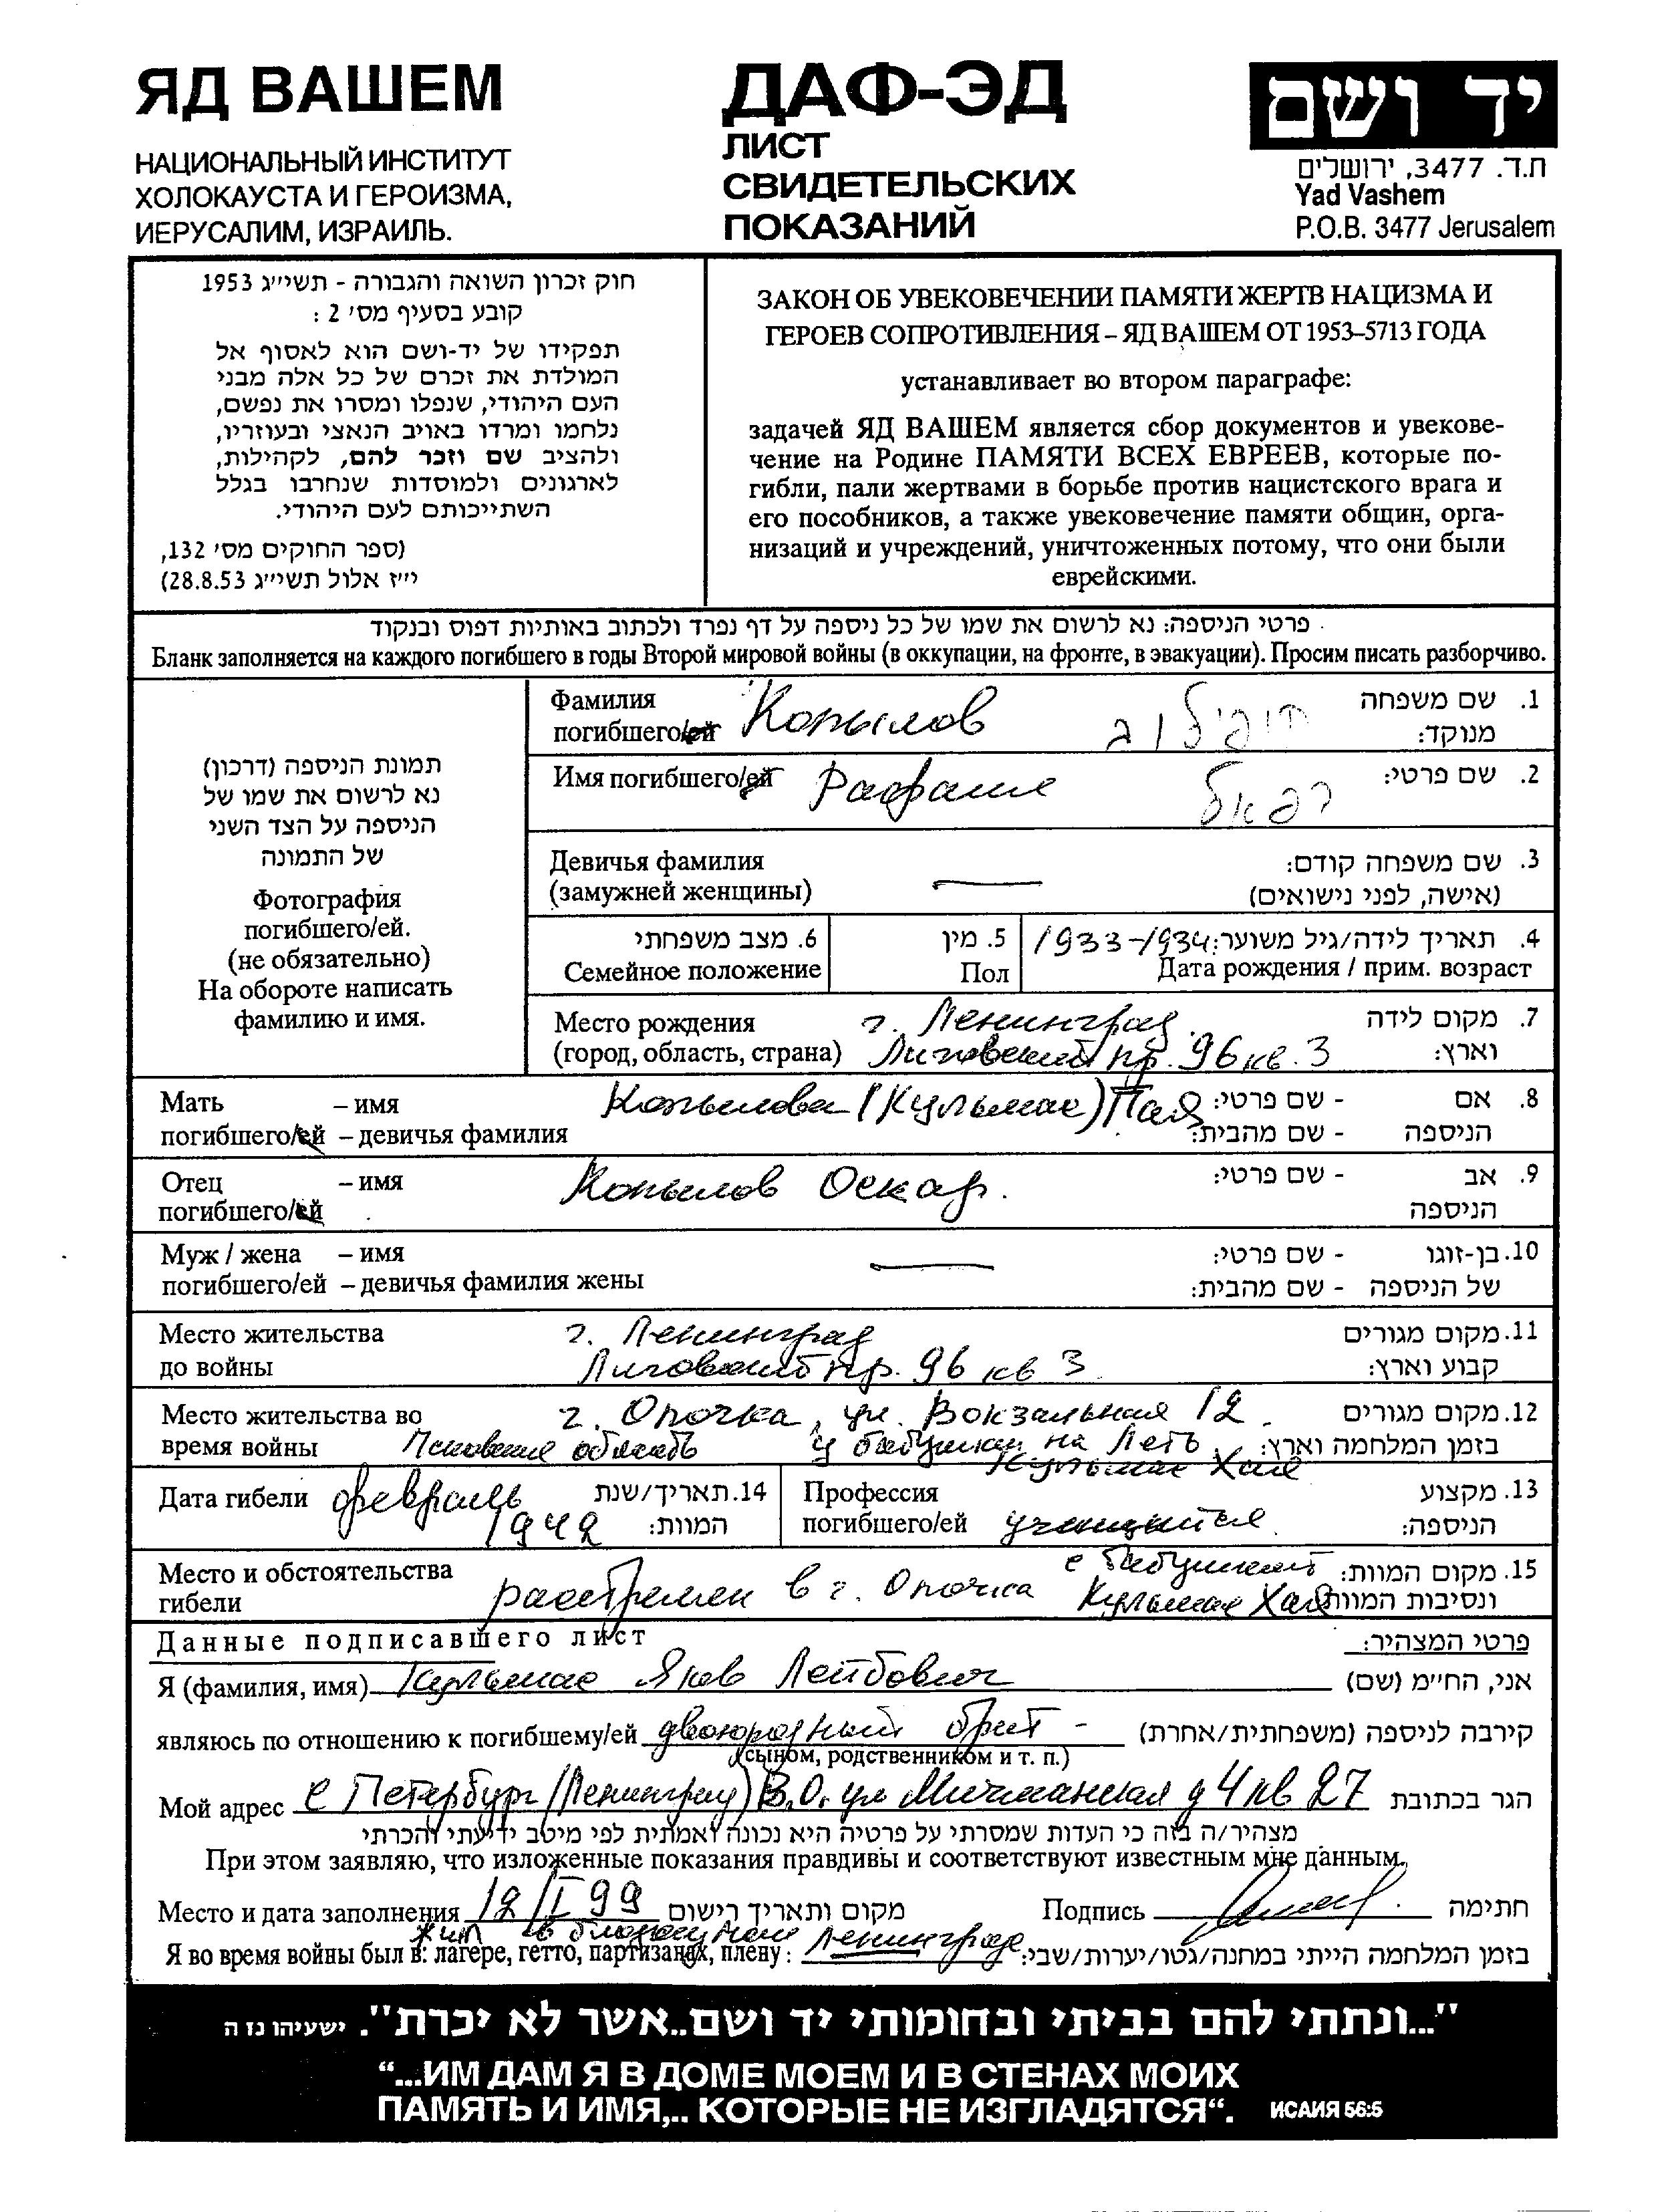 ЯД ВАШЕМ
НАЦИОНАЛЬНЫЙ ИНСТИТУТ
ХОЛОКАУСТА И ГЕРОИЗМА,
ИЕРУСАЛИМ, ИЗРАИЛЬ.
ДАФ-ЭД
ЛИСТ
СВИДЕТЕЛЬСКИХ
ПОКАЗАНИЙ
יד ושם
ת.ד. 3477, ירושלים
Yad Vashem
P.O.B. 3477 Jerusalem
חוק זכרון השואה והגבורה - תשי״ג 1953
קובע בסעיף מס׳ 2 :
תפקידו של יד-ושם הוא לאסוף אל
המולדת את זכרם של כל אלה מבני
העם היהודי, שנפלו ומסרו את נפשם,
נלחמו ומרדו באויב הנאצי ובעוזריו,
ולהציב שם וזכר להם, לקהילות,
לארגונים ולמוסדות שנחרבו בגלל
השתייכותם לעם היהודי.
(ספר החוקים מס׳ 132,
י״ז אלול תשי״ג 28.8.53)
ЗАКОН ОБ УВЕКОВЕЧЕНИИ ПАМЯТИ ЖЕРТВ НАЦИЗМА И
ГЕРОЕВ СОПРОТИВЛЕНИЯ – ЯД ВАШЕМ ОТ 1953–5713 ГОДА
устанавливает во втором параграфе:
задачей ЯД ВАШЕМ является сбор документов и увекове-
чение на Родине ПАМЯТИ ВСЕХ ЕВРЕЕВ, которые по-
гибли, пали жертвами в борьбе против нацистского врага и
его пособников, а также увековечение памяти общин, орга-
низаций и учреждений, уничтоженных потому, что они были
еврейскими.
פרטי הניספה: נא לרשום את שמו של כל ניספה על דף נפרד ולכתוב באותיות דפוס ובנקוד
Бланк заполняется на каждого погибшего в годы Второй мировой войны (в оккупации, на фронте, в эвакуации). Просим писать разборчиво.
תמונת הניספה (דרכון)
נא לרשום את שמו של
הניספה על הצד השני
של התמונה
Фотография
погибшего/ей.
(не обязательно)
На обороте написать
фамилию и имя.
Фамилия
погибшего/ей Копылов קופילוב
1. שם משפחה
מנוקד:
Имя погибшего/ей Рафаил רפאל 2. שם פרטי:
Девичья фамилия
(замужней женщины) —
3. שם משפחה קודם:
(אישה, לפני נישואים)
6. מצב משפחתי
Семейное положение
5. מין
Пол
4. תאריך לידה/גיל משוער: 1933-1934
Дата рождения / прим. возраст
Место рождения г. Ленинград 7. מקום לידה
(город, область, страна) Лиговский пр. 96 кв. 3 וארץ:
Мать – имя Копылова (Кульмас) Пая - שם פרטי: 8. אם
погибшего/ей – девичья фамилия - שם מהבית: הניספה
Отец – имя Копылов Оскар. - שם פרטי: 9. אב
погибшего/ей הניספה
Муж / жена – имя — - שם פרטי: 10. בן-זוגו
погибшего/ей – девичья фамилия жены - שם מהבית: של הניספה
Место жительства г. Ленинград 11. מקום מגורים
до войны Лиговский пр. 96 кв 3 קבוע וארץ:
Место жительства во г. Опочка, ул. Вокзальная 12 12. מקום מגורים
время войны Псковская область у бабушки на Леть בזמן המלחמה וארץ:
Кульмас Хая
Дата гибели февраль 14. תאריך/שנת
1942 המוות:
Профессия 13. מקצוע
погибшего/ей учащийся הניספה:
Место и обстоятельства с бабушкой 15. מקום המוות:
гибели расстрелян в г. Опочка Кульмас Хая ונסיבות המוות
Данные подписавшего лист פרטי המצהיר:
Я (фамилия, имя) Кульмас Яков Лейбович אני, החי״מ (שם)
являюсь по отношению к погибшему/ей двоюродный брат - קירבה לניספה (משפחתית/אחרת)
(сыном, родственником и т. п.)
Мой адрес С Петербург (Ленинград) В.О. ул Мичманская д 4 кв 27 הגר בכתובת
מצהיר/ה בזה כי העדות שמסרתי על פרטיה היא נכונה ואמתית לפי מיטב ידיעתי והכרתי
При этом заявляю, что изложенные показания правдивы и соответствуют известным мне данным.
Место и дата заполнения 12/I 99 מקום ותאריך רישום Подпись חתימה
жил в блокадном
Я во время войны был в: лагере, гетто, партизанах, плену: Ленинграде בזמן המלחמה הייתי במחנה/גטו/יערות/שבי:
"...ונתתי להם בביתי ובחומותי יד ושם..אשר לא יכרת". ישעיהו נז ה
“...ИМ ДАМ Я В ДОМЕ МОЕМ И В СТЕНАХ МОИХ
ПАМЯТЬ И ИМЯ,.. КОТОРЫЕ НЕ ИЗГЛАДЯТСЯ“. ИСАИЯ 56:5